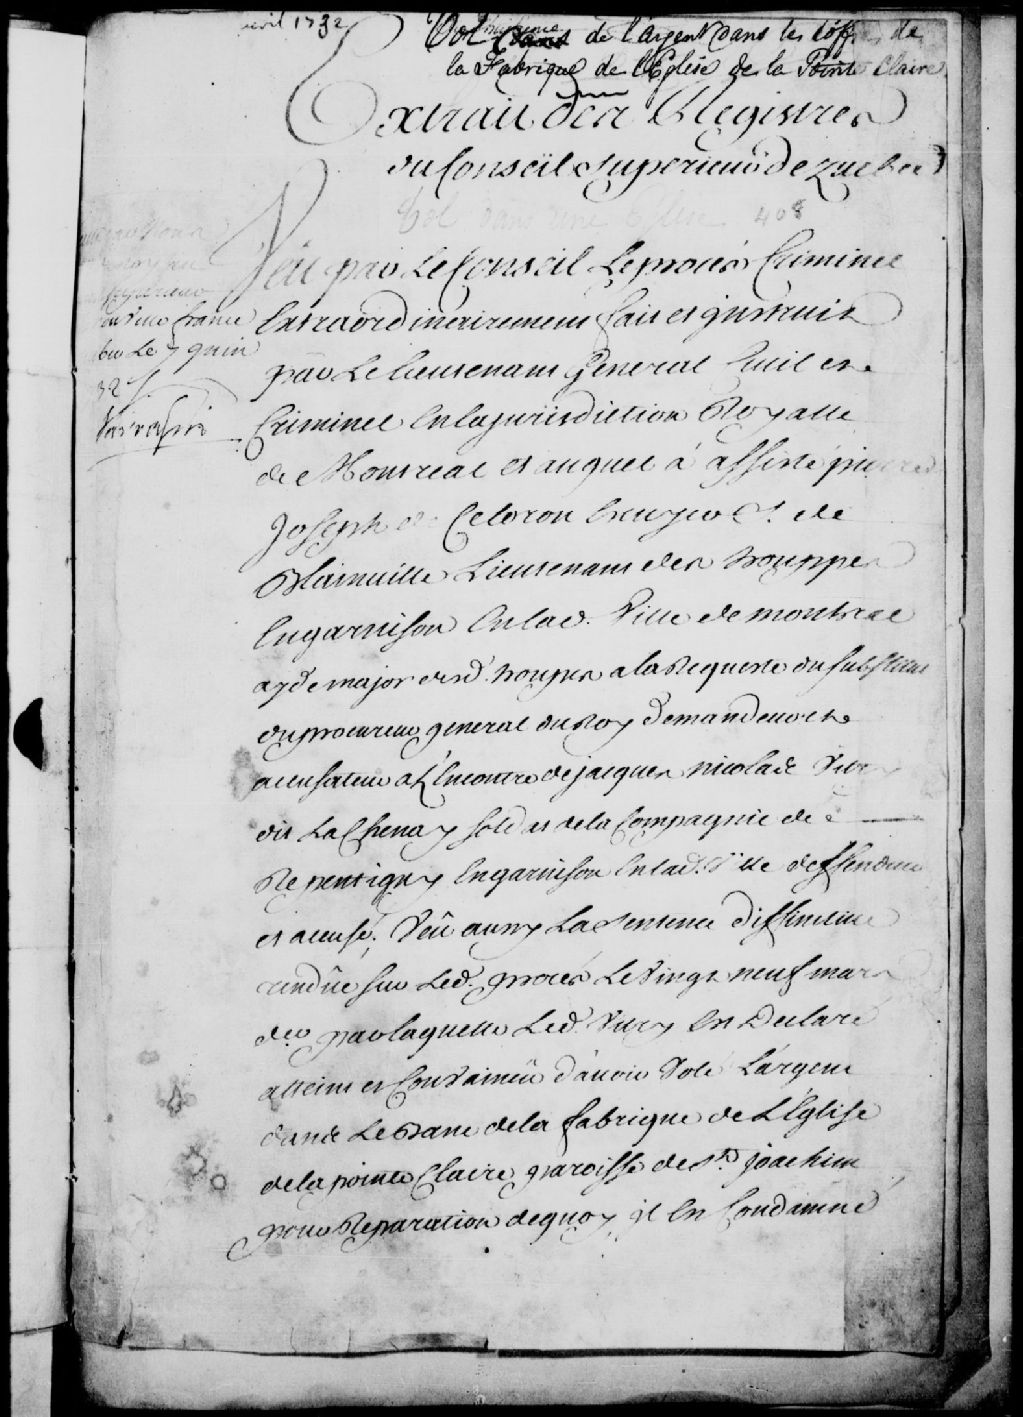 avril 1732
Vol de l'argent dans les coffres de
la Fabrique de l'Eglise de la Pointe Claire
Extrait des Registres
du Conseil Superieur de Quebec
Vol dans une Eglise 408
Veu par Le Conseil Le procés Criminel
Extraordinairement fait et jnstruit
par Le Lieutenant General Civil et
Criminel En la jurisdiction Royalle
de Montreal et auquel á assisté pierre
Joseph de Celoron Ecuyer S. de
Blainville Lieutenant des trouppes
En garnison En lad. Ville de montreal
ayde major desd. troupes a la Requeste du substitut
du procureur general du Roy Demandeur et
accusateur a L'Encontre de jacques nicolas Vitry
dit La Chenay soldat de la Compagnie de
Repentigny En garnison En lad. Ville deffendeur
et accusé; Veû aussy La sentence diffinitive
rendüe sur Led. procés Le Vingt neuf mars
der par laquelle Led. Vitry Est Declaré
atteint et Convaincû d'avoir Volé L'argent
dans Le Banc de la fabrique de L'Eglise
de la pointe Claire, paroisse de St. joachim
pour Reparation de quoy, jl Est Condamné
Nouvelle france
Le 7 juin
32